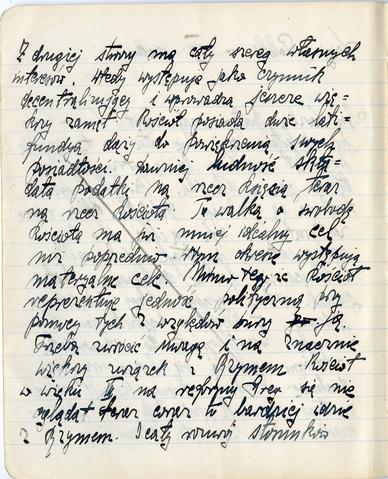 Z drugiej strony ma cały szereg własnych
interesów. Wtedy występuje jako czynnik
decentralizujący i wprowadza jeszcze więk-
szy zamęt. Kościół posiada duże lati-
fundja dąży do powiększenia swych
posiadłości. Dawniej ludność skła-
dała podatki na rzecz Księcia teraz
na rzecz Kościoła. Ta walka o swobodę
Kościoła ma już mniej idealny cel
niż poprzednio. W tym okresie występują
materjalne cele. Mimo tego że Kościół
reprezentuje jedność polityczną przy
pomocy tych względów burzy ją.
Trzeba zwrócić uwagę i na znacznie
większy związek z Rzymem. Kościół
w wieku na się nie
oglądał teraz coraz to bardziej idzie
z Rzymem. I cały rozwój stosunków